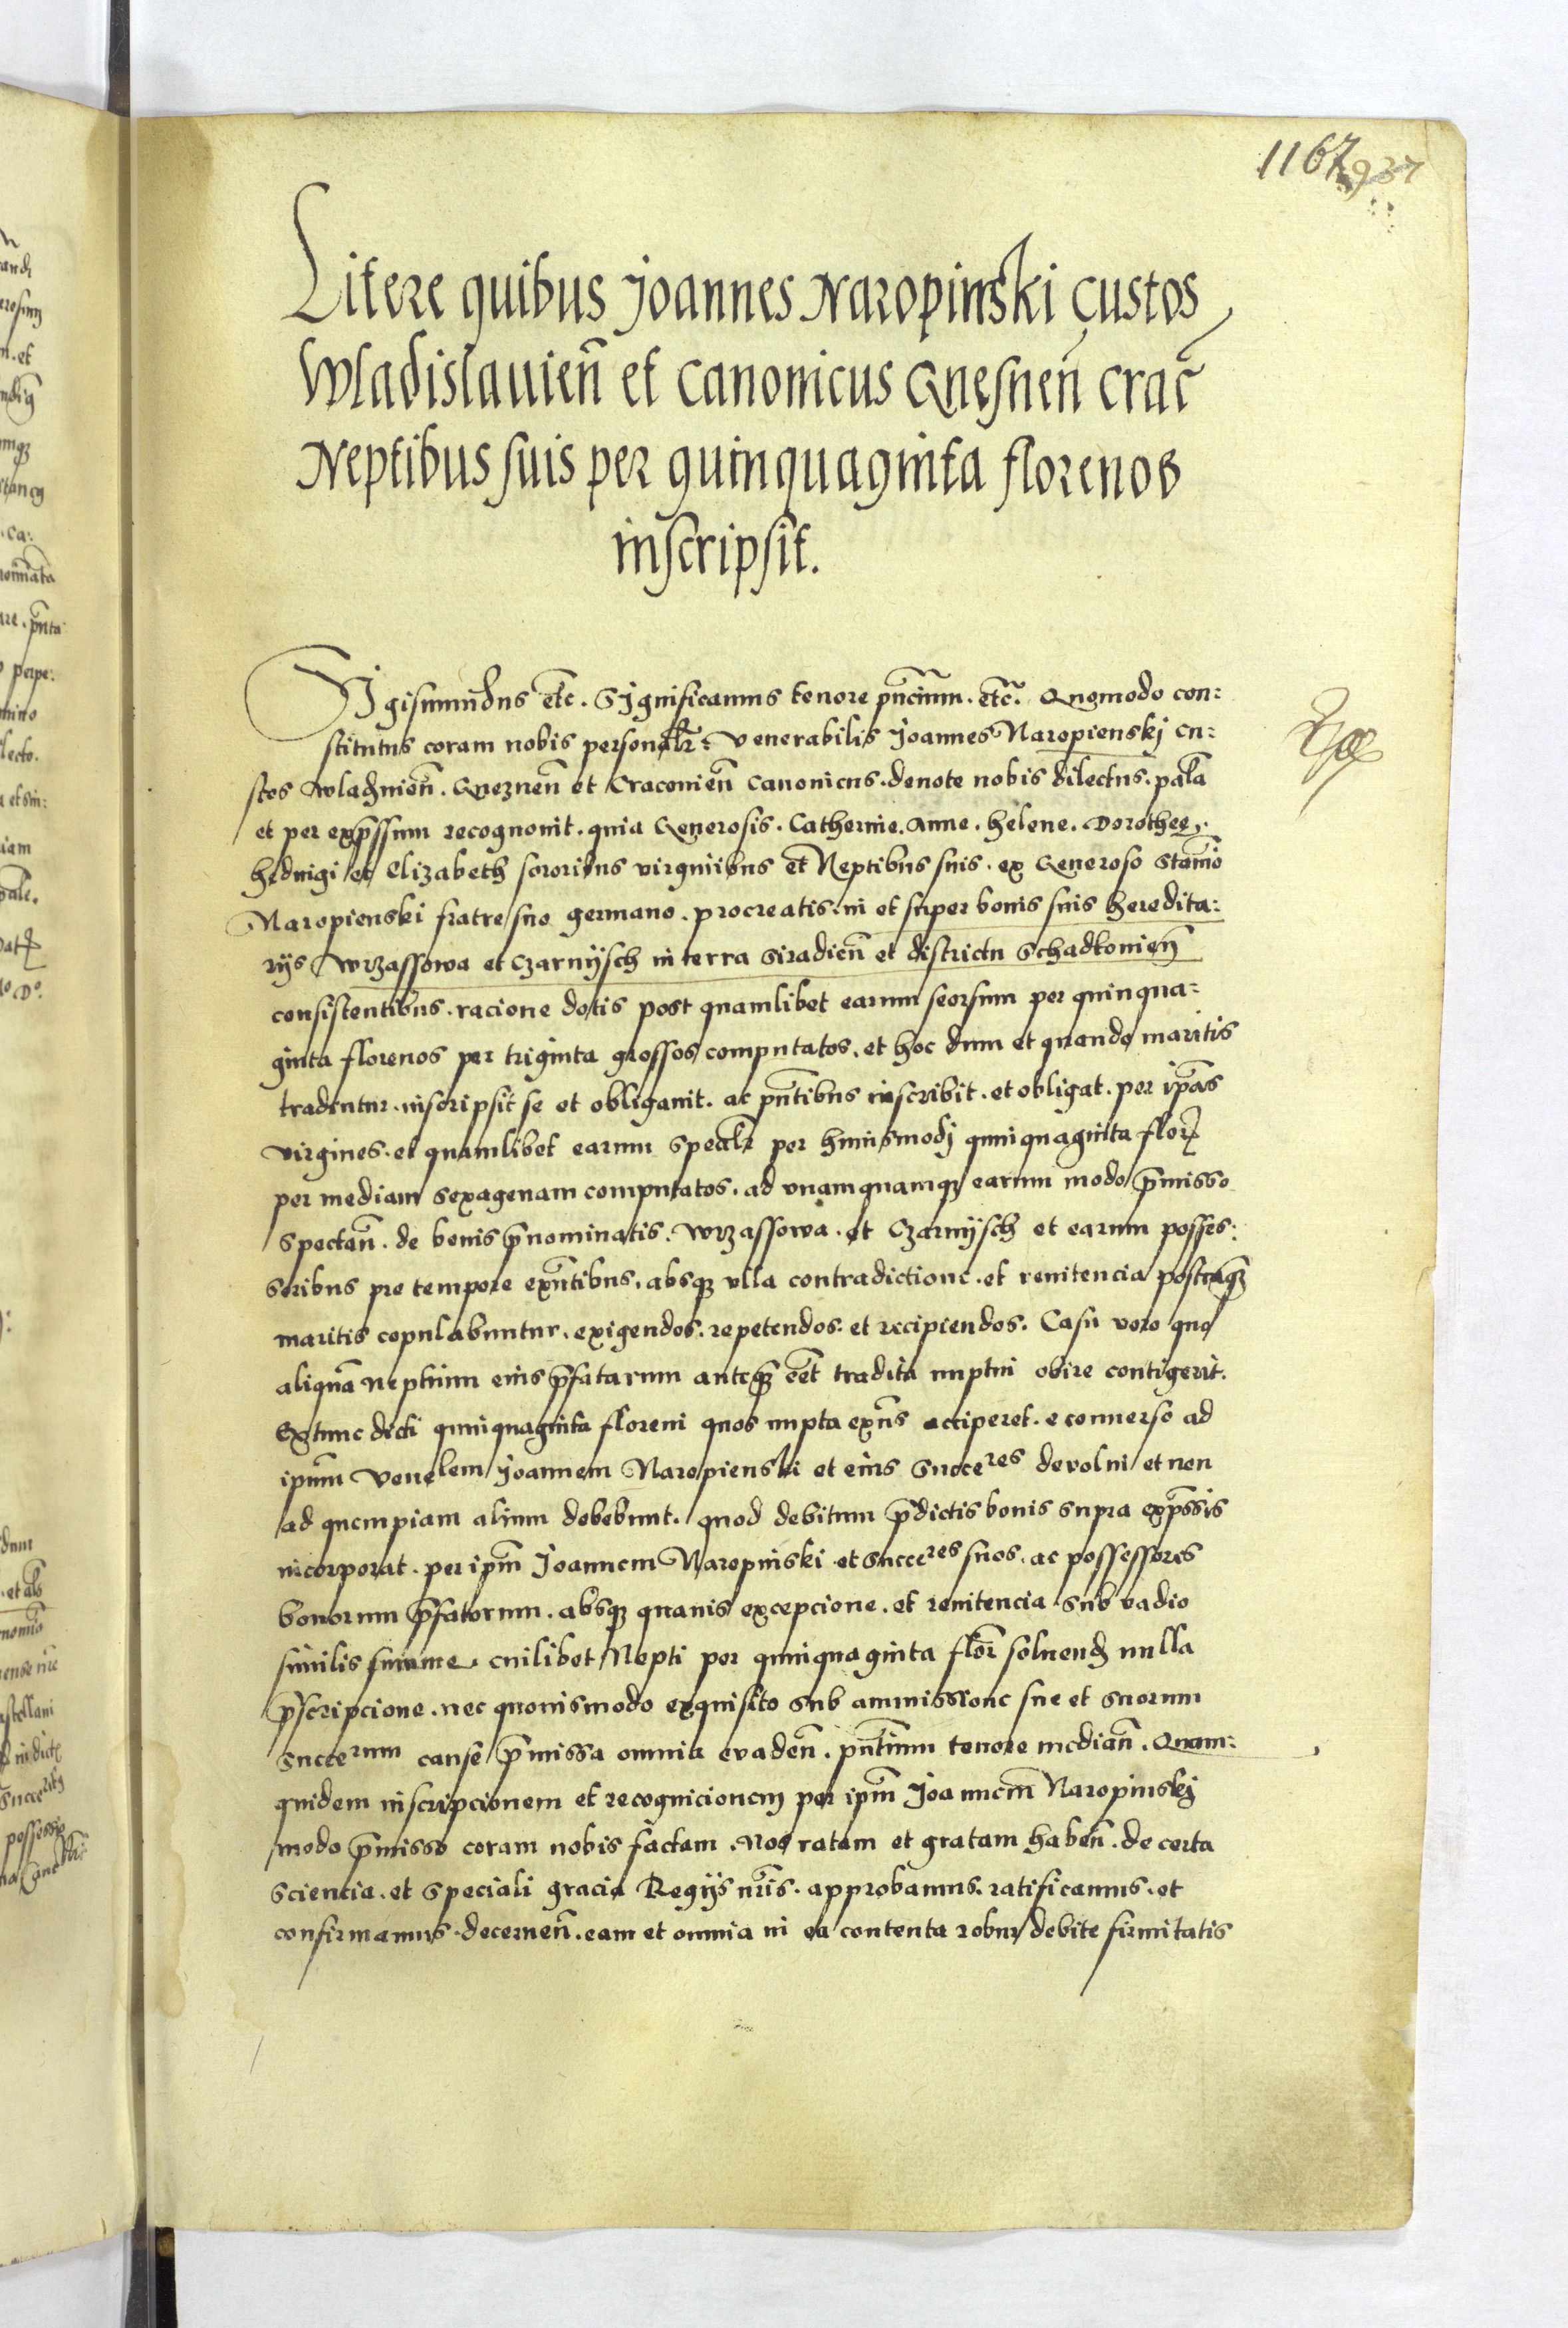 1167 937
Litere quibus Joannes Naropinski Custos
Wladislauien̄ et Canonicus Gnesnen̄ Crac̄
Neptibus suis per quinquaginta florenos
inscripsit.
Sigismundus etc̄. Significamus tenore pn̄cium. etc̄. Quomodo con:
stitutus coram nobis personalr̄: Venerabilis Joannes Naropienskj Cu:
stos Wladislauien̄. Gneznen̄ et Cracouien̄ Canonicus. deuote nobis dilectus. palā
et per exp̄ssum recognouit. quia Generosis. Catherine. Anne. Helene. Dorothee,.
Heduigi et Elizabeth sororibus virginibus et Neptibus suis. ex Generoso Stanīo
Naropienski fratre suo germano. procreatis. in et super bonis suis heredita:
rijs Wrzassowa et Czarnijsch in terra Siradien̄ et districtu Schadkouien̄
consistentibus. racione dotis post quamlibet earum seorsum per quinqua:
ginta florenos per triginta grossos computatos. et hoc dum et quando maritis
tradentur. inscripsit se et obligauit. ac pn̄tibus inscribit. et obligat. per ip̄as
virgines. et quamlibet earum spealr̄ per huiusmodj quinquaginta flor
per mediam sexagenam computatos. ad vnamquamqꝫ earum modo p̄misso
spectan̄. de bonis p̄nominatis. Wrzassowa. et Czarnijsch et earum posses:
soribus pro tempore exn̄tibus. absqꝫ vlla contradictione. et renitencia postqꝫ
maritis copulabuntur. exigendos. repetendos. et recipiendos. Casu vero quo
aliquā neptium eius p̄fatarum anteqꝫ eēt tradita nuptui obire contigerit.
Extunc dicti quinquaginta floreni quos nupta exn̄s acciperet. e conuerso ad
ipum̄ Venelem Joannem Naropienski et eius Succeres deuolui et non
ad quempiam alium debebunt. quod debitum p̄dictis bonis supra exp̄ssis
incorporat. per ipm̄ Joannem Naropinski et succeres suos. ac possessores
bonorum p̄fatorum. absqꝫ quauis excepcione. et renitencia sub vadio
similis summe. cuilibet Nepti per quinquaginta flor̄ soluend nulla
p̄scripcione. nec quouismodo exquisito sub ammissione sue et suorum
succerum cause p̄missa omnia evaden̄. pn̄tium tenore median̄. Quam:
quidem inscripcionem et recognicionem per ipm̄ Joannem̄ Naropinskij
modo p̄misso coram nobis factam. Nos ratam et gratam haben̄. de certa
sciencia. et speciali gracia Regijs nr̄is. approbamus. ratificamus. et
confirmamus. decernen̄. eam et omnia in ea contenta robur debite firmitatis